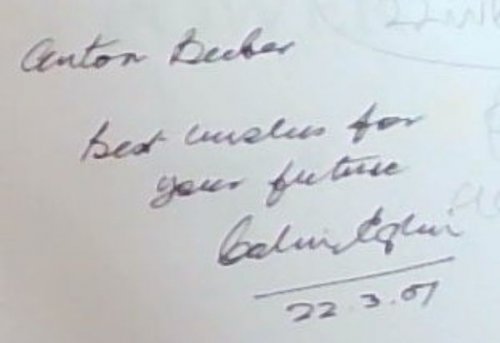 Anton Berber
Best wishes for
your future
Colin Eglin
22.3.01